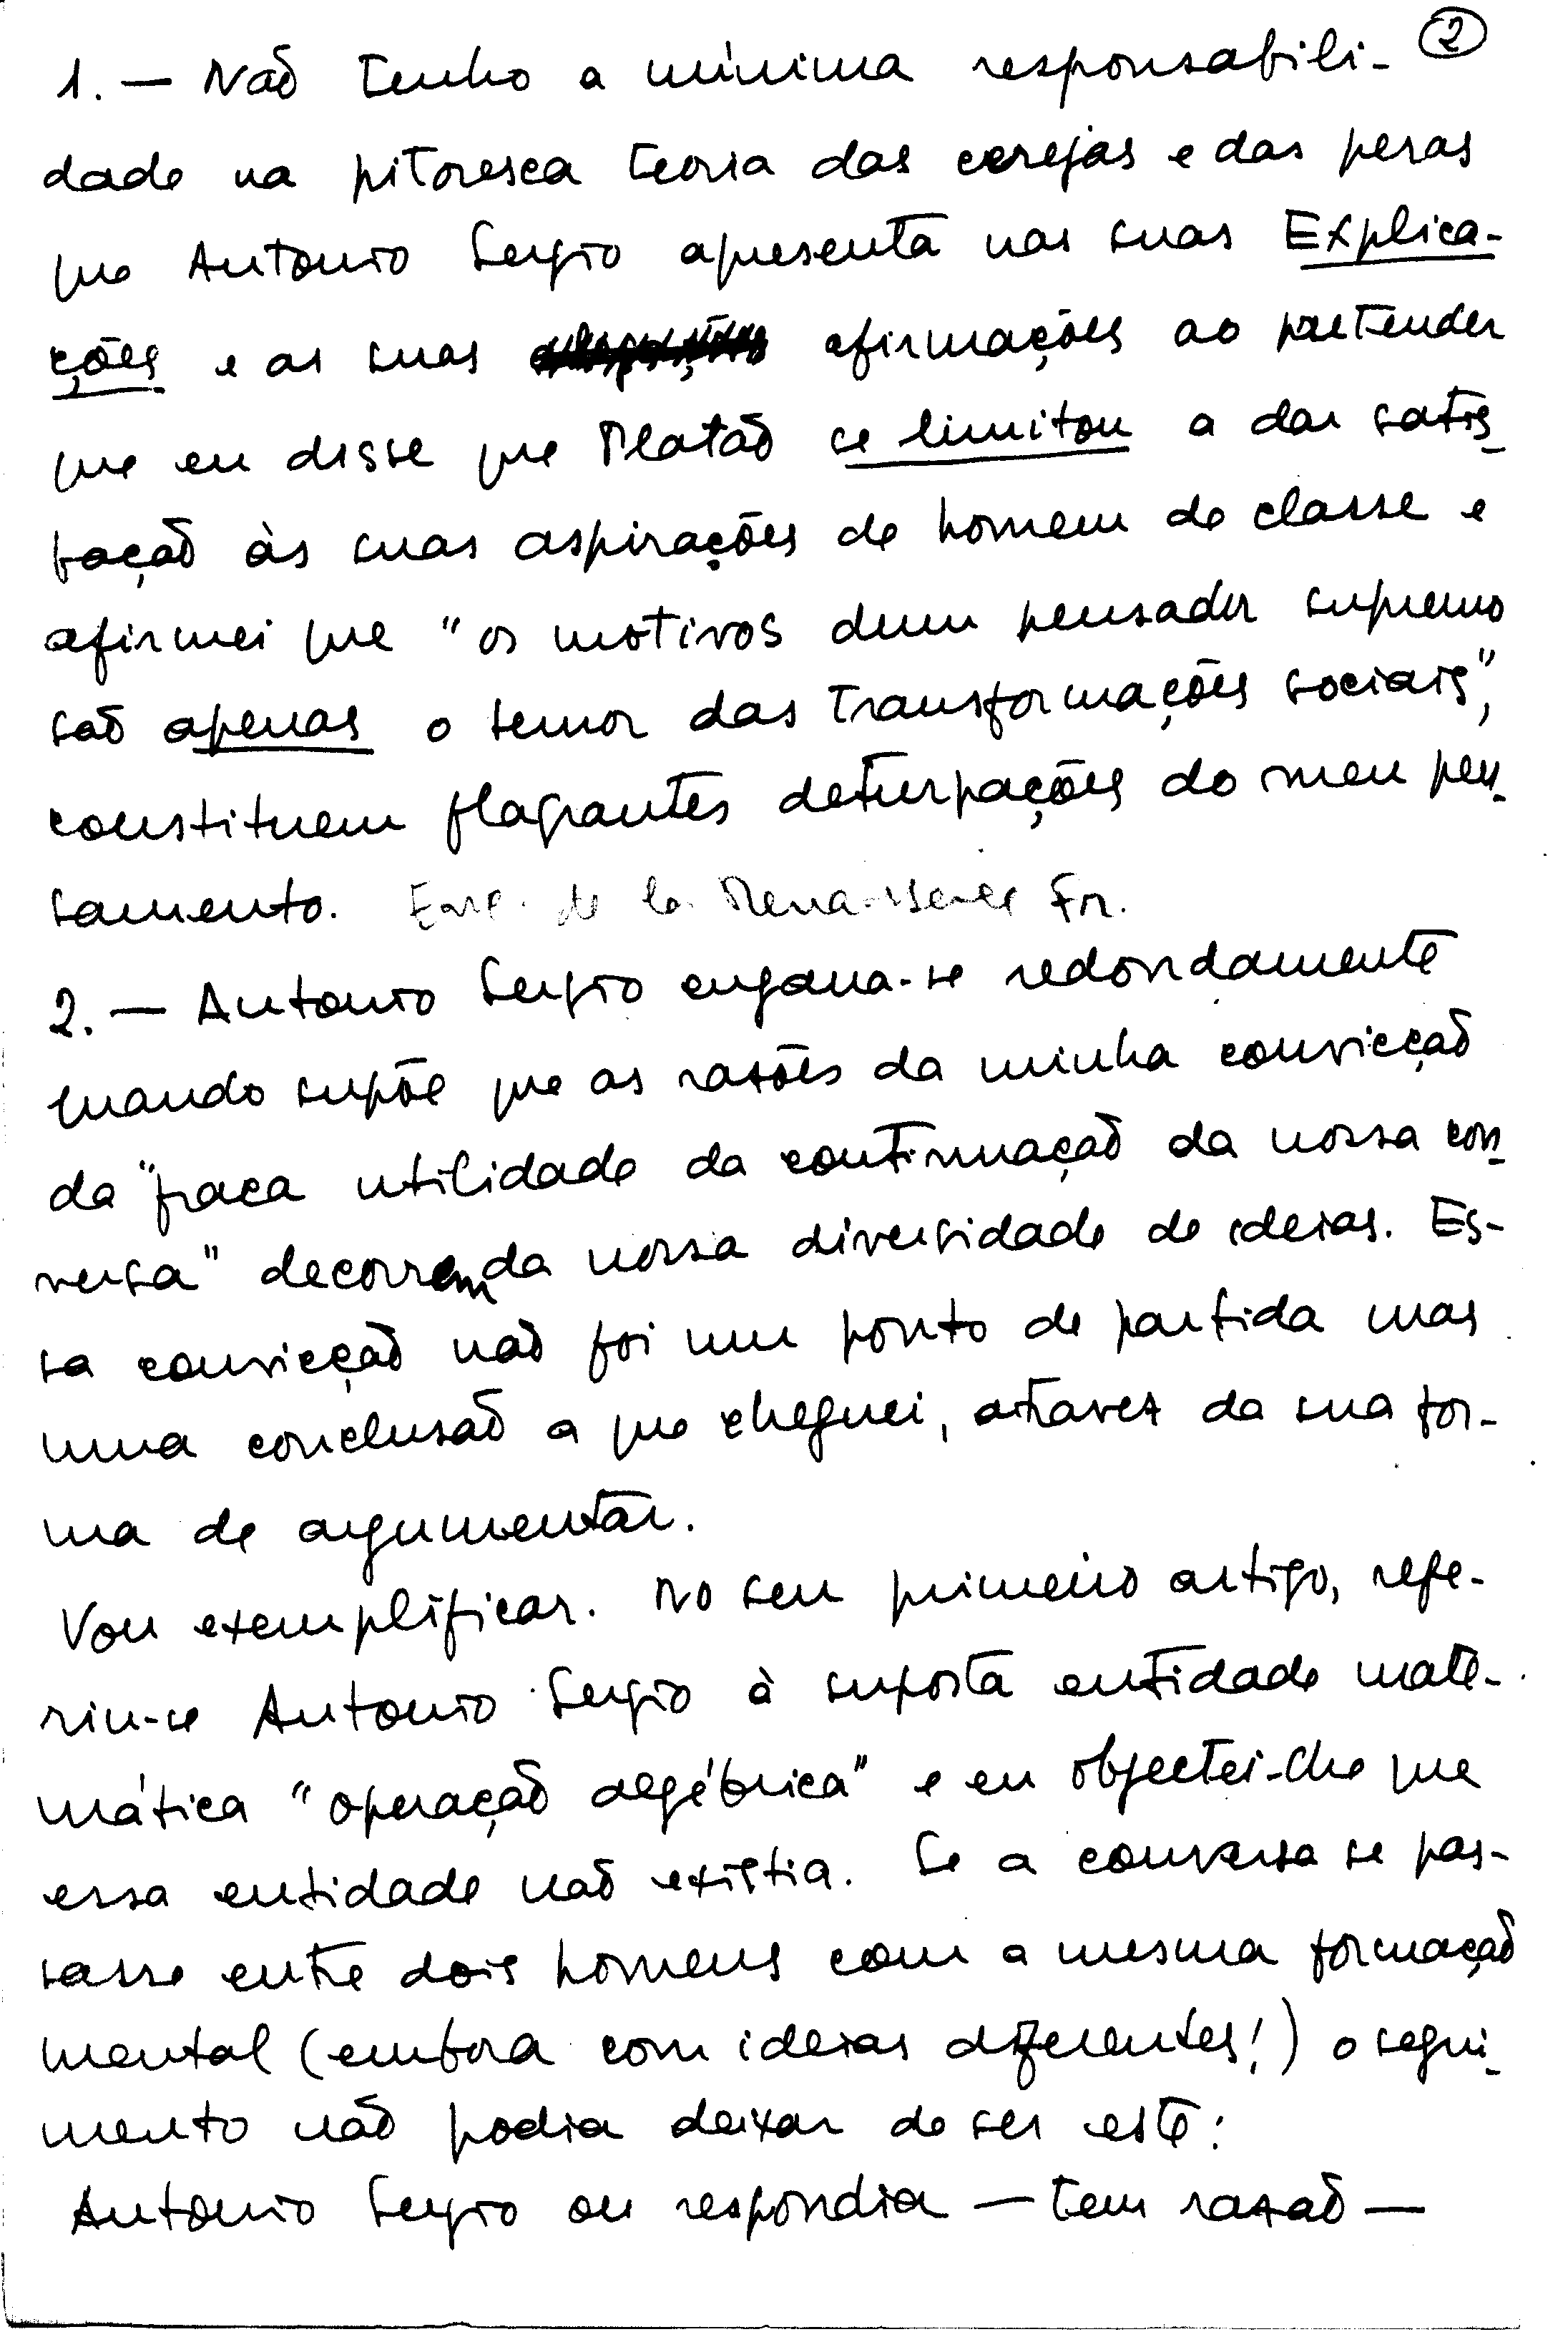 ②
1. — Não tenho a mínima responsabili-
dade na pitoresca teoria das cerejas e das peras
que Antonio Sergio apresenta nas suas Explica-
ções e as suas afirmações ao pretender
que eu disse que Platão se limitou a dar satis-
fação às suas aspirações de homem de classe e
afirmei que "os motivos dum pensador supremo
são apenas o temor das transformações sociais",
constituem flagrantes deturpações do meu pen-
samento. de la Fr.
2. — Antonio Sergio engana-se redondamente
quando supõe que as razões da minha convicção
da "fraca utilidade da continuação da nossa con-
versa" decorrem da nossa diversidade de ideias. Es-
sa convicção não foi um ponto de partida mas
uma conclusão a que cheguei, atravez da sua for-
ma de argumentar.
Vou exemplificar. No seu primeiro artigo, refe-
riu-se Antonio Sergio à suposta entidade mate-
mática "operação algébrica" e eu objectei-lhe que
essa entidade não existia. Se a conversa se pas-
sasse entre dois homens com a mesma formação
mental (embora com ideias diferentes!) o segui-
mento não podia deixar de ser este:
Antonio Sergio ou respondia — tem razão —